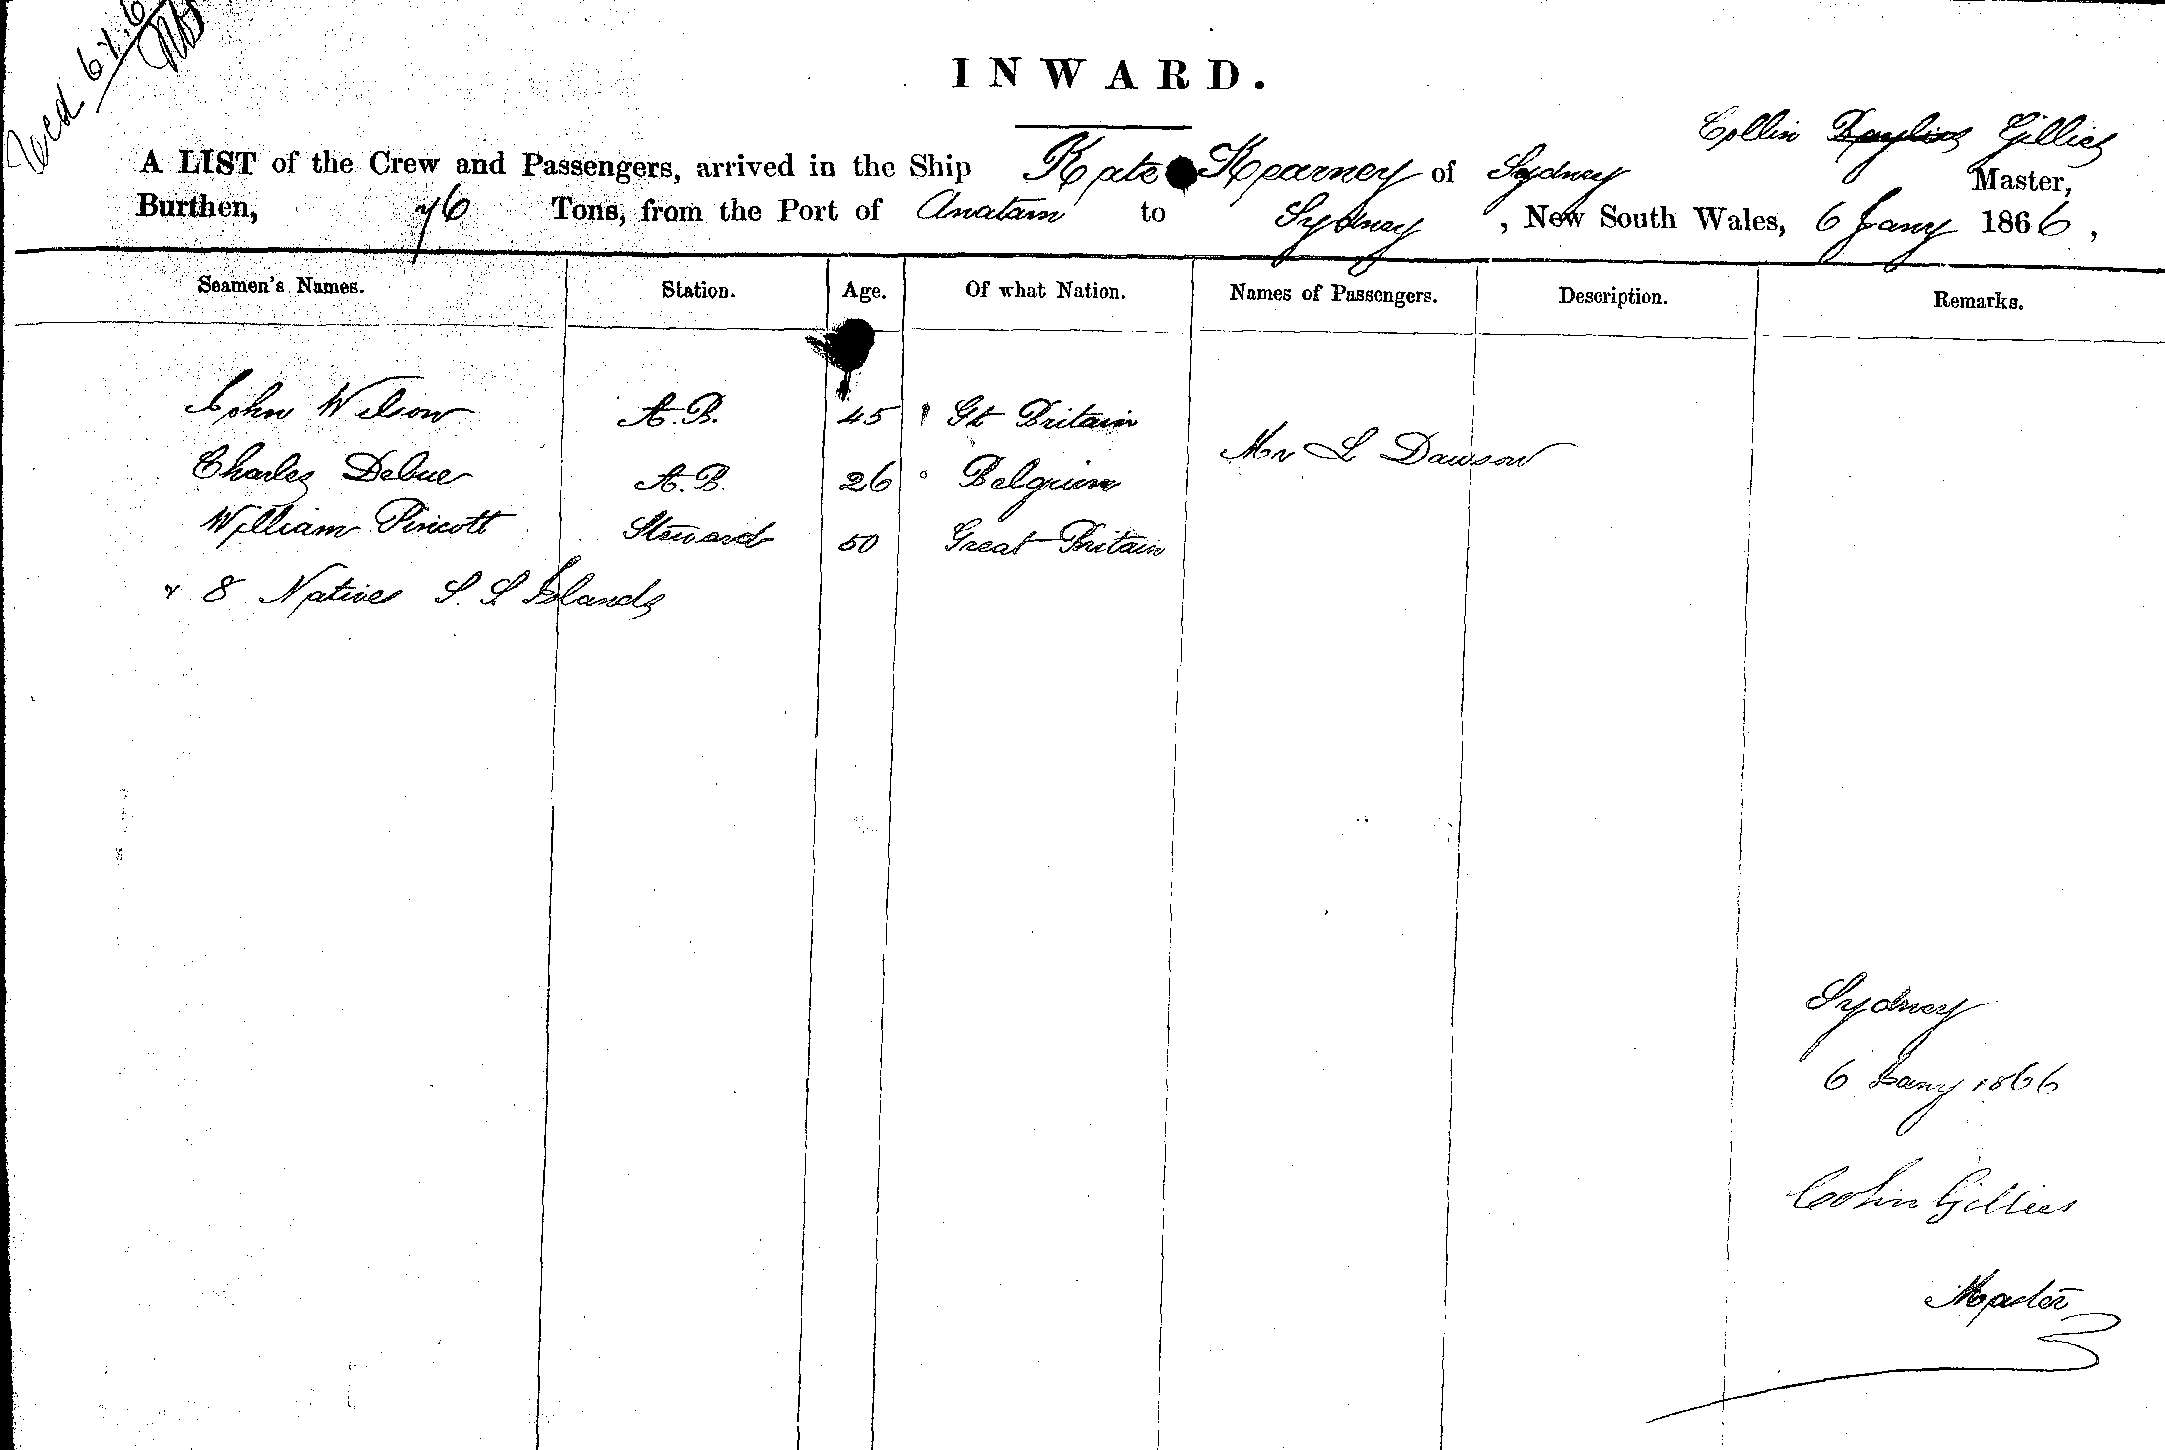 INWARD.
Collin Gillies
A LIST of the Crew and Passengers, arrived in the Ship Kate Kearney of Sydney Master,
Burthen, 76 Tons, from the Port of Anatam to Sydney, New South Wales, 6 Jany 1866,
Seamen's Names. Station. Age. Of what Nation. Names of Passengers. Description. Remarks.
John Wilson A.B. 45 Gt Britain
Mr L Dawson
Charles Debue A.B. 26 Belgium
William Pincott Steward 50 Great Britain
& 8 Natives S. S Islands
Sydney
6 Jany 1866
Colin Gillies
Master